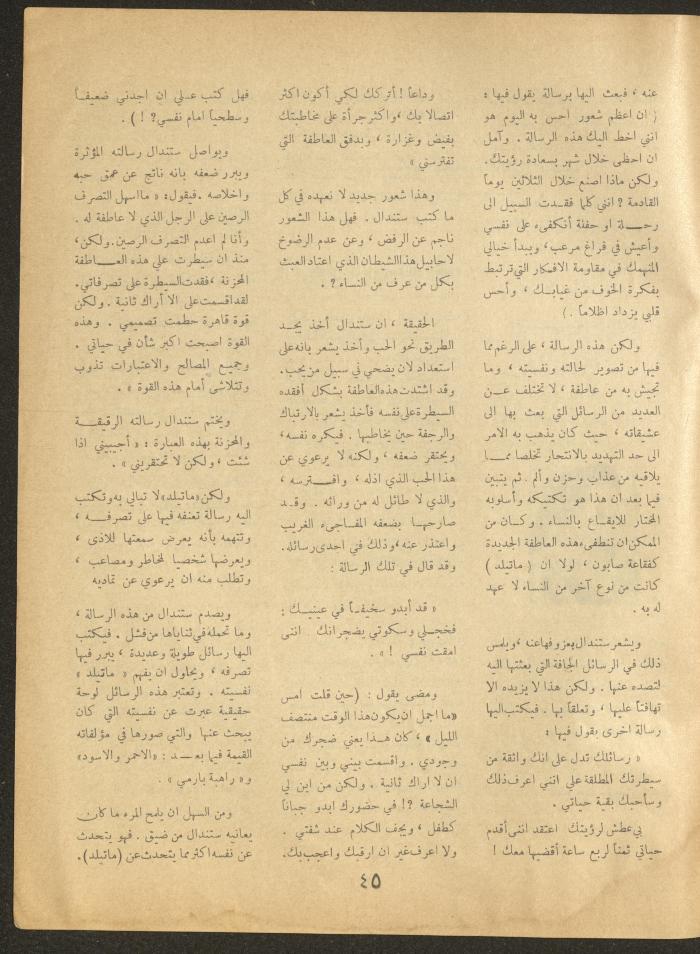 عنه ، فبعث اليها برسالة يقول فيها :
( ان اعظم شعور احس به اليوم هو
انني اخط اليك هذه الرسالة . وآمل
ان احظى خلال شهر بسعادة رؤيتك.
ولكن ماذا اصنع خلال الثلاثين يوماً
القادمة ? انني كلما فقدت السبيل الى
رحلة او حفلة أنكفىء على نفسي
وأعيش في فراغ مرعب، ويبدأ خيالي
المنهمك في مقاومة الافكار التي ترتبط
بفكرة الخوف من غيابك ، وأحس
قلبي يزداد اظلاماً .)
ولكن هذه الرسالة ، على الرغم مما
فيها من تصوير لحالته ونفسيته ، وما
تجيش به من عاطفة ، لا تختلف عن
العديد من الرسائل التي بعث بها الى
عشيقاته ، حيث كان يذهب به الامر
الى حد التهديد بالانتحار تخلصا مما
يلاقيه من عذاب وحزن وألم . ثم يتبين
فيما بعد ان هذا هو تكتيكه وأسلوبه
المختار للايقاع بالنساء . وكان من
الممكن ان تنطفىء هذه العاطفة الجديدة
كفقاعة صابون ، لولا ان ( ماتيلد )
كانت من نوع آخر من النساء لا عهد
له به .
ويشعر ستندال بعزوفها عنه ، ويلمس
ذلك في الرسائل الجافة التي بعثتها اليه
لتصده عنها . ولكن هذا لا يزيده الا
تهافتاً عليها ، وتعلقاً بها . فيكتب اليها
رسالة اخرى يقول فيها :
« رسائلك تدل على انك واثقة من
سيطرتك المطلقة علي انني اعرف ذلك
وسأحبك بقية حياتي .
بي عطش لرؤيتك اعتقد انني أقدم
حياتي ثمناً لربع ساعة أقضيها معك !
وداعاً ! أتركك لكي أكون اكثر
اتصالا بك ، واكثر جرأة على مخاطبتك
بفيض وغزارة ، وبدفق العاطفة التي
تفترسني »
وهذا شعور جديد لا نعهده في كل
ما كتب ستندال . فهل هذا الشعور
ناجم عن الرفض ، وعن عدم الرضوخ
لاحابيل هذا الشيطان الذي اعتاد العبث
بكل من عرف من النساء ? .
الحقيقة ، ان ستندال أخذ يجد
الطريق نحو الحب وأخذ يشعر بانه على
استعداد لان يضحي في سبيل من يحب.
وقد اشتدت هذه العاطفة بشكل أفقده
السيطرة على نفسه فأخذ يشعر بالارتباك
والرجفة حين يخاطبها . فيكره نفسه ،
ويحتقر ضعفه ، ولكنه لا يرعوي عن
هذا الحب الذي اذله ، وافترسه ،
والذي لا طائل له من ورائه . وقد
صارحها بضعفه المفاجىء الغريب
واعتذر عنه ، وذلك في احدى رسائله.
وقد قال في تلك الرسالة :
« قد أبدو سخيفاً في عينيك :
فخجلي وسكوتي يضجرانك انني
امقت نفسي ! » .
ومضى يقول : (حين قلت امس
«ما اجمل ان يكون هذا الوقت منتصف
الليل » ، كان هذا يعني ضجرك من
وجودي . واقسمت بيني وبين نفسي
ان لا اراك ثانية . ولكن من اين لي
الشجاعة ?! في حضورك ابدو جباناً
كطفل ، ويجف الكلام عند شفتي .
ولا اعرف غير ان ارقبك واعجب بك.
فهل كتب علي ان اجدني ضعيفاً
وسطحياً امام نفسي? ! ) .
ويواصل ستندال رسالته المؤثرة
ويبرر ضعفه بانه ناتج عن عمق حبه
واخلاصه . فيقول: « ما اسهل التصرف
الرصين على الرجل الذي لا عاطفة له .
وأنا لم اعدم التصرف الرصين. ولكن،
منذ ان سيطرت علي هذه العاطفة
المحزنة ، فقدت السيطرة على تصرفاتي.
لقد اقسمت على الا أراك ثانية . ولكن
قوة قاهرة حطمت تصميمي . وهذه
القوة اصبحت اكبر شأن في حياتي .
وجميع المصالح والاعتبارات تذوب
وتتلاشى أمام هذه القوة » .
ويختم ستندال رسالته الرقيقة
والمحزنة بهذه العبارة : « أجيبيني اذا
شئت ، ولكن لا تحتقريني » .
ولكن «ماتيلد» لا تبالي به وتكتب
اليه رسالة تعنفه فيها على تصرفه ،
وتتهمه بأنه يعرض سمعتها للاذى ،
ويعرضها شخصيا لمخاطر ومصاعب ،
وتطلب منه ان يرعوي عن تماديه
ويصدم ستندال من هذه الرسالة ،
وما تحمله في ثناياها من فشل . فيكتب
اليها رسائل طويلة وعديدة ، يبرر فيها
تصرفه ، ويحاول ان يفهم « ماتيلد »
نفسيته . وتعتبر هذه الرسائل لوحة
حقيقية عبرت عن نفسيته التي كان
يبحث عنها والتي صورها في مؤلفاته
القيمة فيما بعد : «الاحمر والاسود»
و« راهبة بارمي » .
ومن السهل ان يلمح المرء ما كان
يعانيه ستندال من ضيق . فهو يتحدث
عن نفسه اكثر مما يتحدث عن (ماتيلد).
٤٥